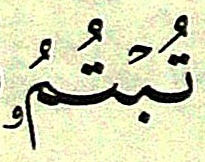 تُبۡتُمُۥ